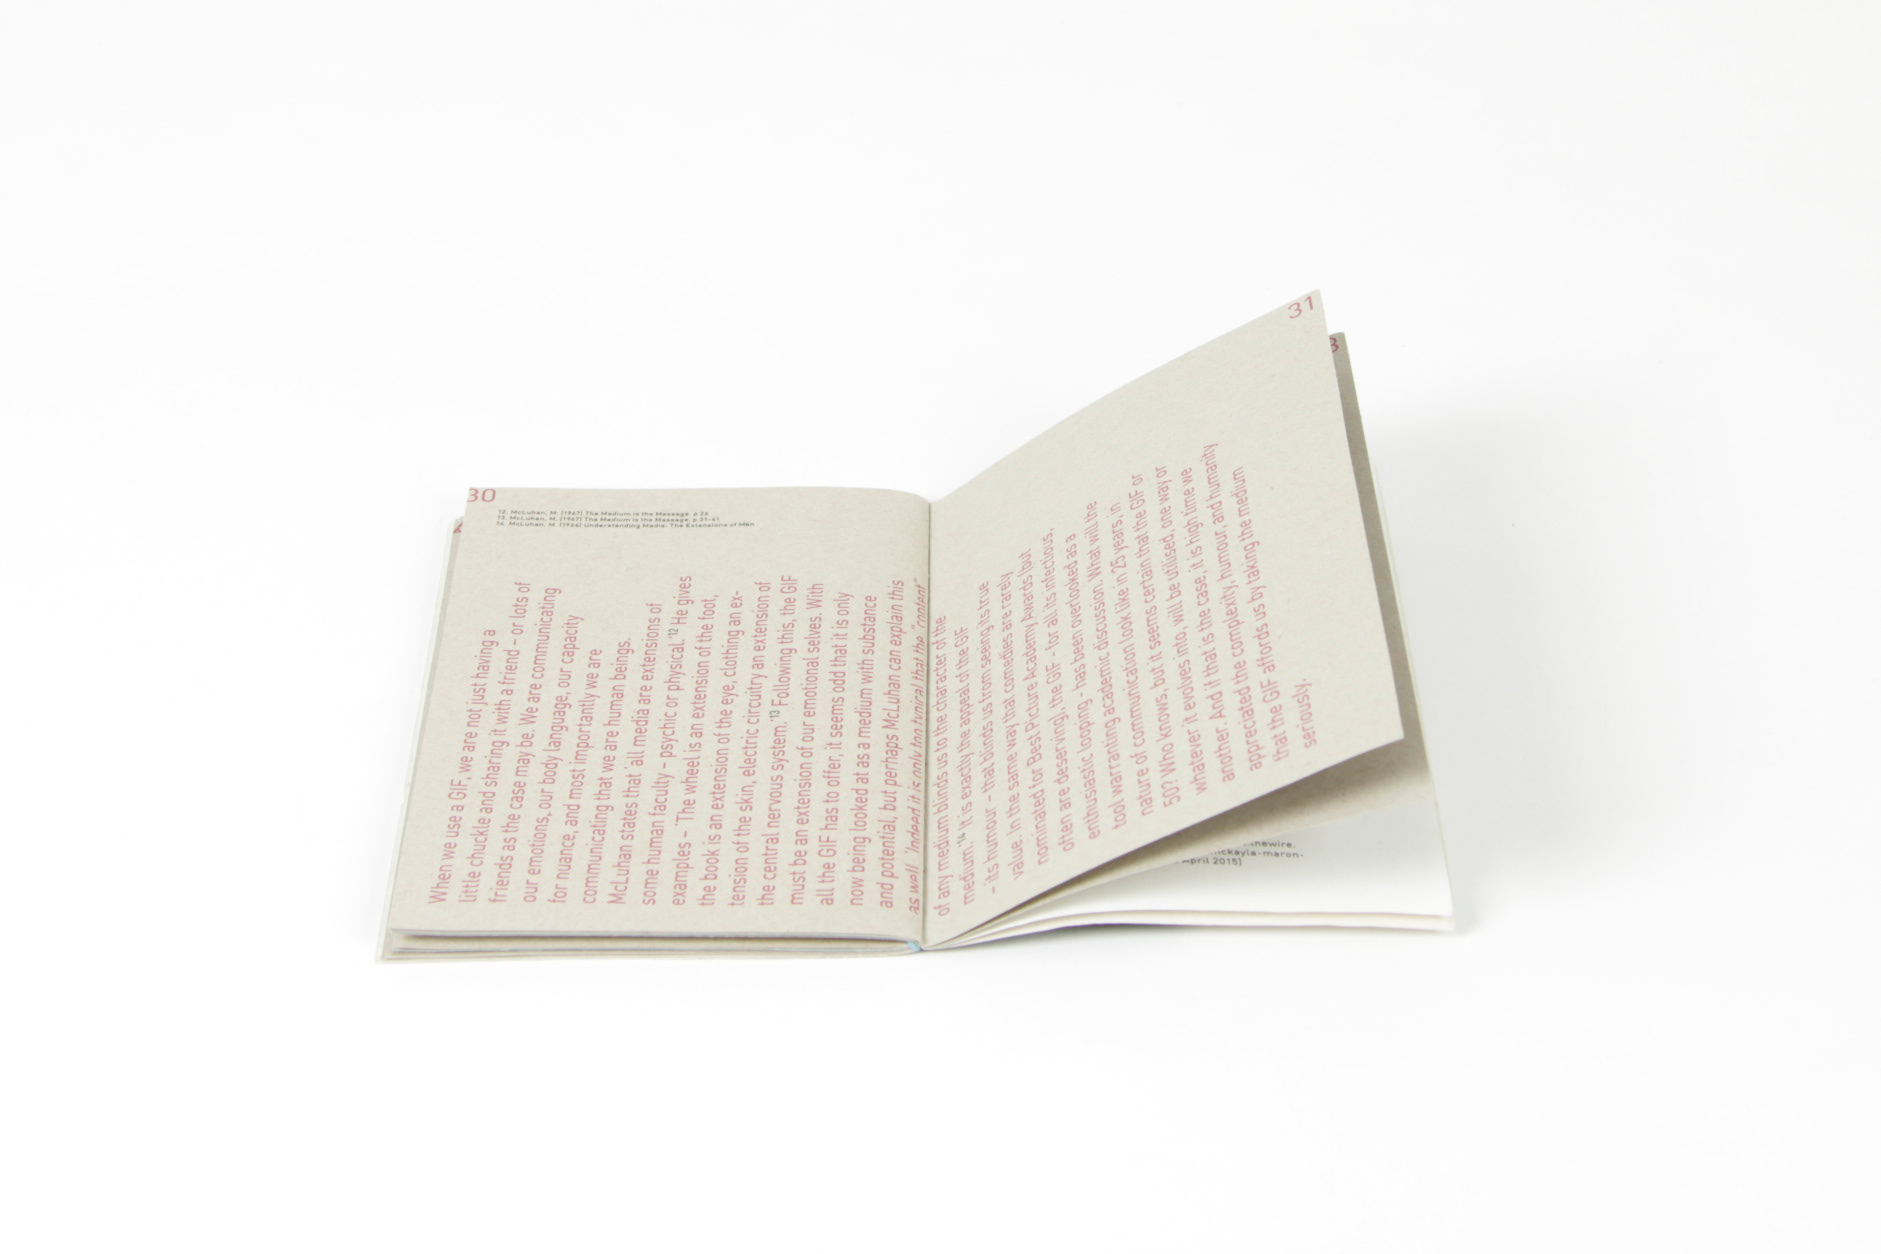 30
12. McLuhan, M. (1967) The Medium is the Massage. p 26
13. McLuhan, M. (1967) The Medium is the Massage. p 31-41
14. McLuhan, M. (1964) Understanding Media: The Extensions of Man
When we use a GIF, we are not just having a
little chuckle and sharing it with a friend – or lots of
friends as the case may be. We are communicating
our emotions, our body language, our capacity
for nuance, and most importantly we are
communicating that we are human beings.
McLuhan states that 'all media are extensions of
some human faculty – psychic or physical.'12 He gives
examples – 'The wheel is an extension of the foot,
the book is an extension of the eye, clothing an ex-
tension of the skin, electric circuitry an extension of
the central nervous system.'13 Following this, the GIF
must be an extension of our emotional selves. With
all the GIF has to offer, it seems odd that it is only
now being looked at as a medium with substance
and potential, but perhaps McLuhan can explain this
as well. 'Indeed it is only too typical that the "content"
31
of any medium blinds us to the character of the
medium.'14 It is exactly the appeal of the GIF
– its humour – that blinds us from seeing its true
value. In the same way that comedies are rarely
nominated for Best Picture Academy Awards (but
often are deserving), the GIF - for all its infectious,
enthusiastic looping - has been overlooked as a
tool warranting academic discussion. What will the
nature of communication look like in 25 years, in
50? Who knows, but it seems certain that the GIF or
whatever it evolves into, will be utilised, one way or
another. And if that is the case, it is high time we
appreciated the complexity, humour, and humanity
that the GIF affords us by taking the medium
seriously.
3
newire.
ickayla-maron-
April 2015)